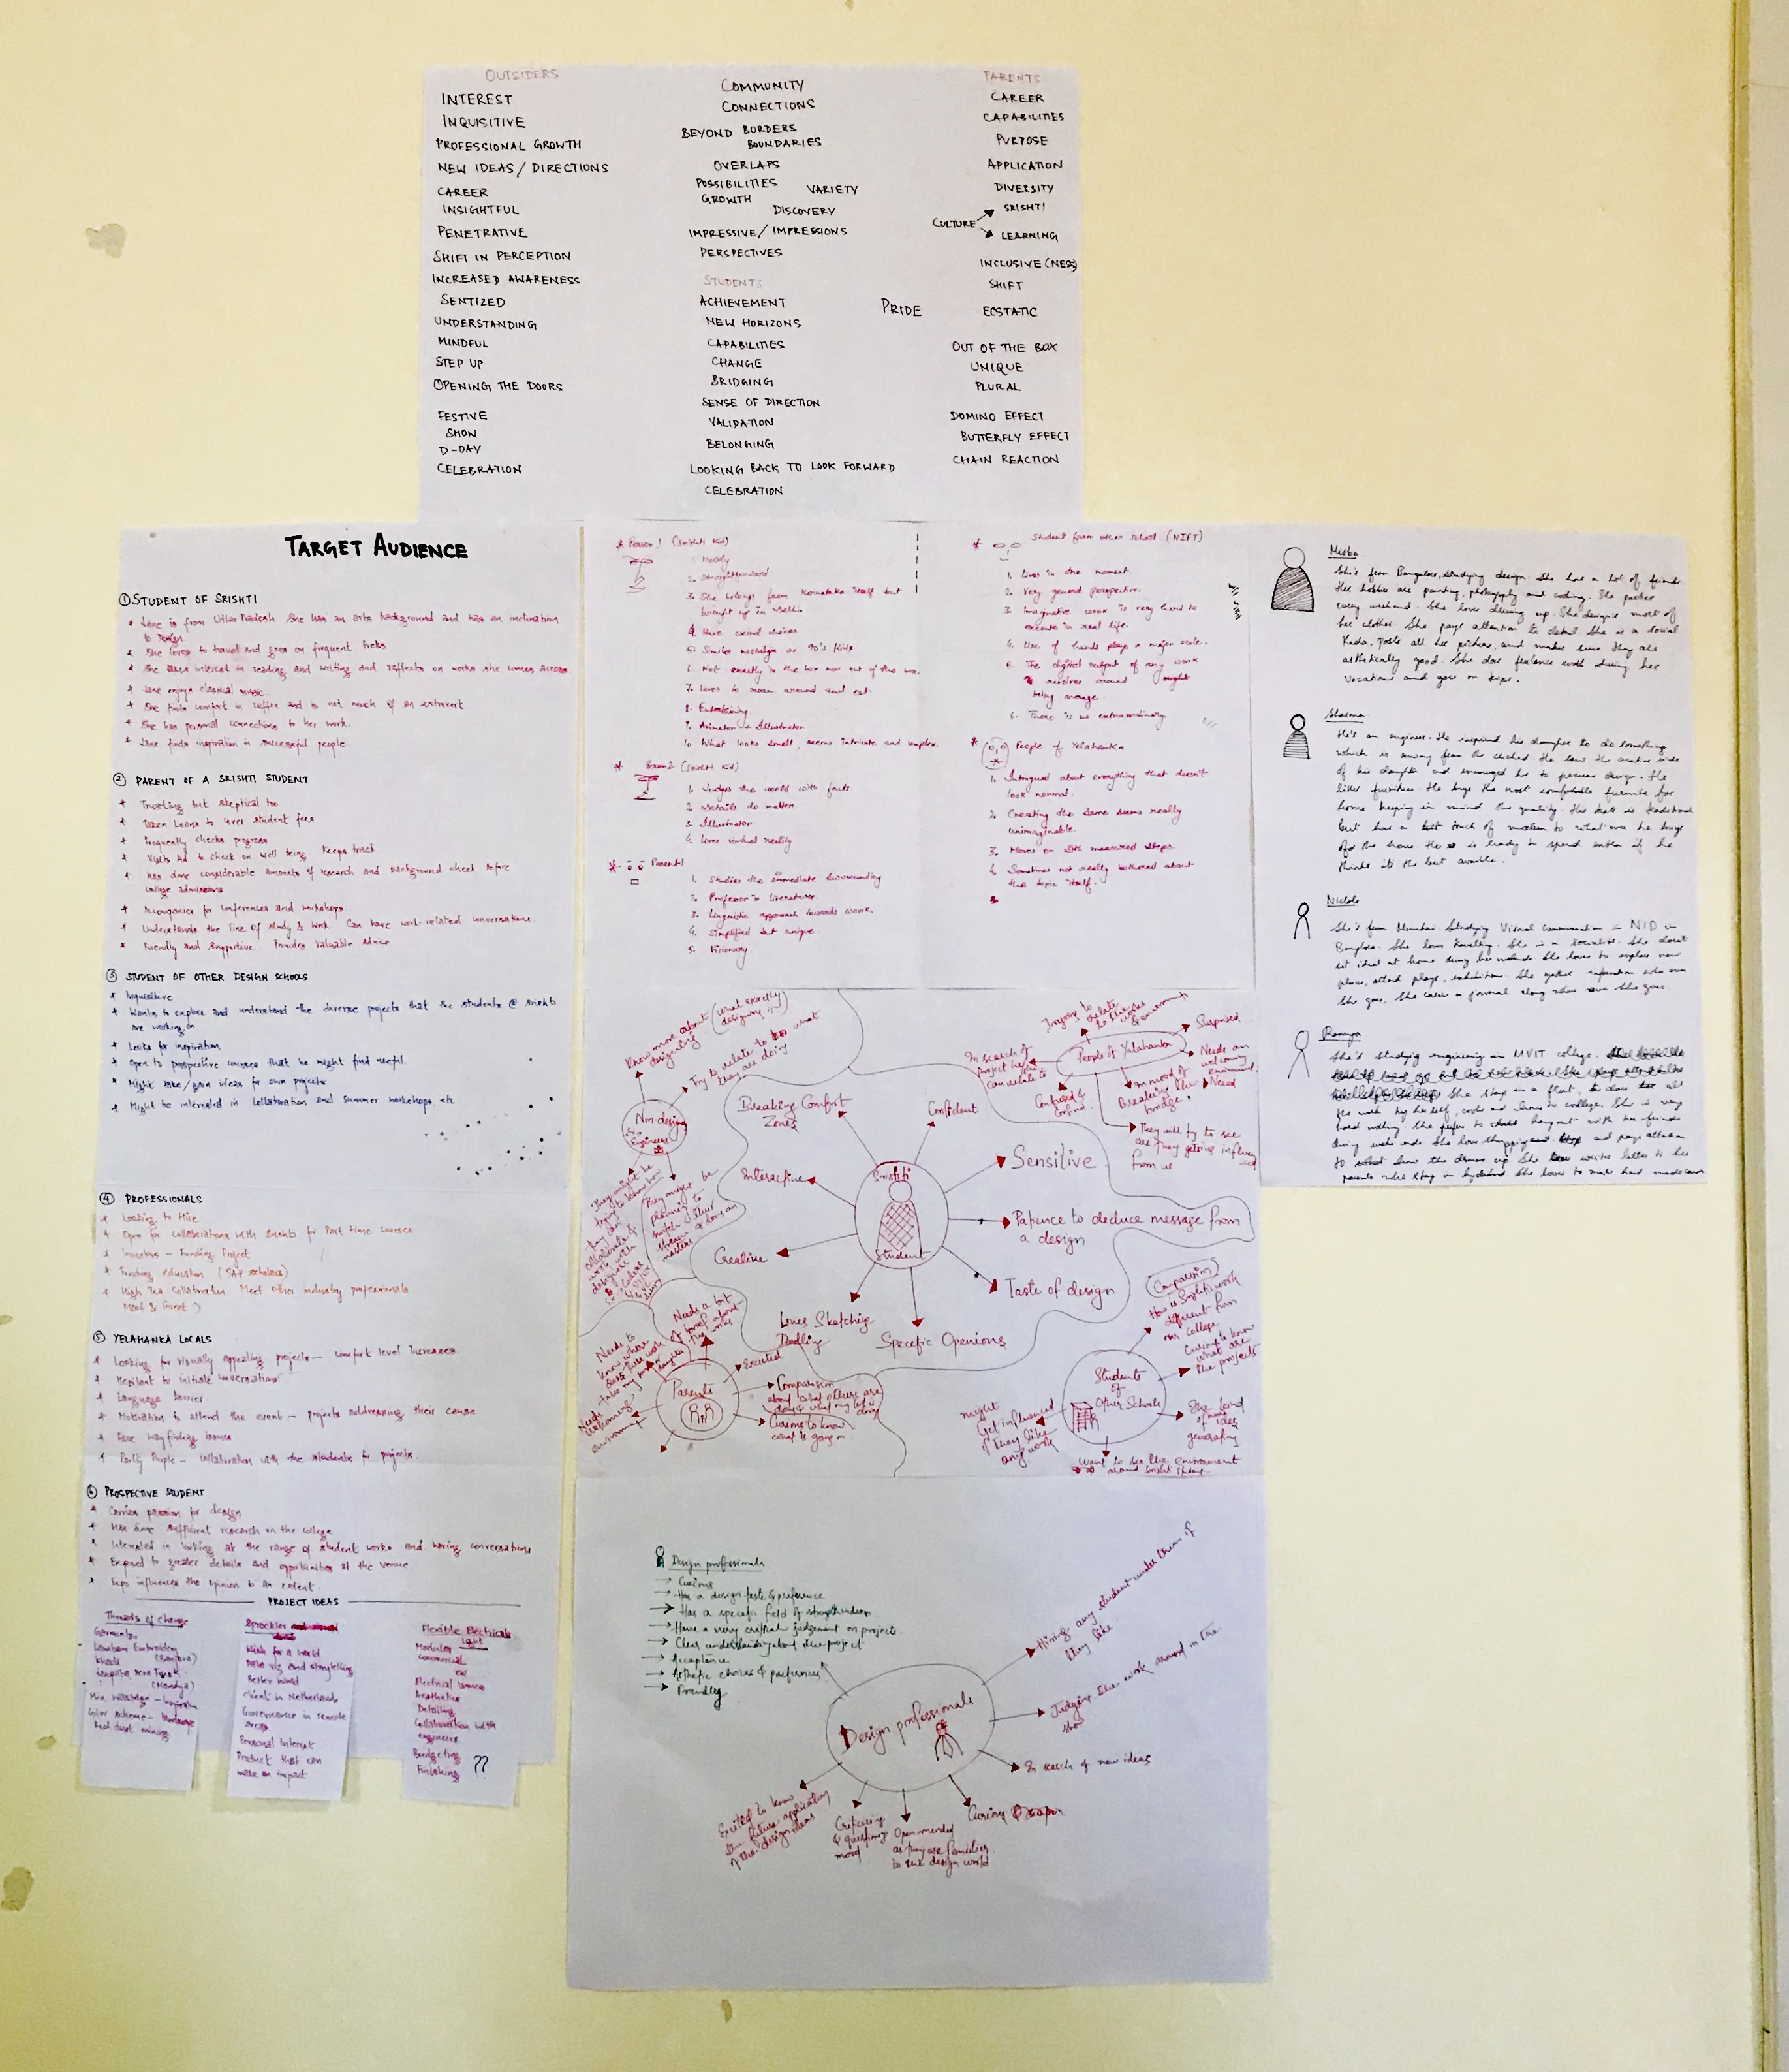 OUTSIDERS
INTEREST
INQUISITIVE
PROFESSIONAL GROWTH
NEW IDEAS / DIRECTIONS
CAREER
INSIGHTFUL
PENETRATIVE
SHIFT IN PERCEPTION
INCREASED AWARENESS
SENTIZED
UNDERSTANDING
MINDFUL
STEP UP
OPENING THE DOORS
FESTIVE
SHOW
D-DAY
CELEBRATION
COMMUNITY
CONNECTIONS
BEYOND BORDERS
BOUNDARIES
OVERLAPS
POSSIBILITIES
VARIETY
GROWTH
DISCOVERY
IMPRESSIVE / IMPRESSIONS
PERSPECTIVES
STUDENTS
ACHIEVEMENT
NEW HORIZONS
CAPABILITIES
CHANGE
BRIDGING
SENSE OF DIRECTION
VALIDATION
BELONGING
LOOKING BACK TO LOOK FORWARD
CELEBRATION
PRIDE
PARENTS
CAREER
CAPABILITIES
PURPOSE
APPLICATION
DIVERSITY
CULTURE
SRISHTI
LEARNING
INCLUSIVE (NESS)
SHIFT
ECSTATIC
OUT OF THE BOX
UNIQUE
PLURAL
DOMINO EFFECT
BUTTERFLY EFFECT
CHAIN REACTION
TARGET AUDIENCE
① STUDENT OF SRISHTI
is from Uttar Pradesh. She has an arts background and has an inclination
to Design
She loves to travel and goes on frequent treks
She takes interest in reading and writing and reflects on works she comes across
enjoys classical music
She finds comfort in coffee and is not much of an extrovert
She has personal connections to her work.
finds inspiration in successful people.
② PARENT OF A SRISHTI STUDENT
Trusting but skeptical too
Taken Loans to cover student fees
Frequently checks progress
Visits kid to check on well being. Keeps track
Has done considerable amounts of research and background check before
college admissions
for conferences and workshops
Understands the line of study & work. Can have work related conversations.
Friendly and supportive. Provides valuable advice
③ STUDENT OF OTHER DESIGN SCHOOLS
Inquisitive
Wants to explore and understand the diverse projects that the students @ srishti
are working on
Looks for inspiration
Open to prospective courses that he might find useful.
Might take/gain ideas for own projects
Might be interested in collaboration and summer workshops etc
④ PROFESSIONALS
Looking to Hire
Open for collaborations with Srishti for Part time courses
Investors - Funding Project
Funding education (SAP scholars)
High Tea Collaboration Meet other industry professionals
Meet & Greet )
⑤ YELAHANKA LOCALS
Looking for visually appealing projects - comfort level increases.
Hesitant to initiate conversations
Language barrier
Motivation to attend the event - projects addressing their cause
Face wayfinding issues
Party People - collaboration with the students for projects.
⑥ PROSPECTIVE STUDENT
Carries passion for design
Has done sufficient research on the college
Interested in looking at the range of student works and having conversations
Exposed to greater details and opportunities at the venue.
Expo influences the opinion to an extent.
PROJECT IDEAS
Threads of Change
Garments
Lambani Embroidery
Khadi
(Mandya)
Red dust mining
Wish for a world
Data viz and storytelling
Better world
Client in Netherlands
Governance in remote
areas
Personal Interest
Product that can
make an impact
Flexible Electrical
Light
Modular
Commercial
Aesthetics
Detailing
Collaboration with
engineers
Budgeting
Finishing ??
Person 1 (Srishti Kid)
1. Moody
2. Straightforward
3. She belongs from Karnataka itself but
brought up in Delhi
4. Have weird choices
5. Similar nostalgia as 90's kids
6. Not exactly in the box nor out of the box.
7. Loves to roam around and eat.
8. Entertaining.
9. Animator + Illustrator
10. What looks small, seems intricate and complex.
Person 2 (Srishti Kid)
1. Judges the world with facts
2. Details do matter.
3. Illustrator
4. Loves virtual reality
Parent 1
1. Studies the immediate surrounding
2. Professor in literature.
3. Linguistic approach towards work.
4. Simplified but unique.
5. Visionary.
Student from other school (NIFT)
1. Lives in the moment.
2. Very general perspective.
3. Imaginative work is very hard to
execute in real life.
4. Use of hands plays a major role.
5. The digital output of any work
revolves around
being average.
6. There is no extraordinary.
People of Yelahanka
1. Intrigued about everything that doesn't
look normal.
2. Creating the same seems really
unimaginable.
3. Moves on with measured steps
4. Sometimes not really bothered about
the topic itself.
Misba
She's from Bangalore, studying design. She has a lot of friends.
Her hobbies are painting, photography and coding. She parties
every weekend. She loves dressing up. She designs most of
her clothes. She pays attention to detail. She is a social
posts all her pictures, and makes sure they are
asthetically good. She does freelance work during her
vacations and goes on trips.
Sharma
He's an engineer. He inspired his daughter to do something
which is away from the cliched. He saw the creative side
of his daughter and encouraged her to pursue design. He
likes furniture. He buys the most comfortable furniture for
home keeping in mind the quality.
but has a touch of modern to what ever he buys
for the house. He is ready to spend extra if he
thinks its the best
She's from Mumbai. Studying Visual Communication in NID in
Banglore. She loves travelling. She is a socialite. She doesnt
sit ideal at home during her weekends. She loves to explore new
places, attend plays, exhibitions. She gathers information
She goes. She carries a journal along where ever she goes.
Ramya
She's studying engineering in MVIT college.
She stays in a flat,
the work by herself, cooks and to college. She is very
hard working. She prefers to hangout with her friends
during week ends. She loves shopping and pays attention
to how she dresses up. She writes letters to her
parents who stay in hyderabad. She loves to make hand made cards
Know more about (what exactly
designing is)
Try to relate to what
they are doing
Non-design
Engineers
Breaking Comfort
Zones
Confident
Sensitive
Interactive
Creative
Srishti
Student
Patience to deduce message from
a design
Taste of design
Loves Sketching
Doodling
Specific Openions
People of Yelahanka
Surprised
Needs an
welcoming
In search of
project he
can relate to
Confused &
In mood of
Breaking the
bridge.
They will try to see
are they getting
from us
Parents
Excited
Comparision
about what others are
doing & what my kid is
doing
Curious to know
what is going on
Needs
welcoming
environment
Needs to
know where
Students
of
Other Schools
(Comparision)
How is Srishti work
different from
our college
Curious to know
what are
the projects
of new
ideas
generating
Might
Get influenced
if they like
any work
Want to see the environment
around Srishti student.
Design professionals
→ Curious
→ Has a design taste & preference
→ Has a specific field of
→ Have a very critical judgement on projects
→ Clear understanding about the project
→ Acceptance
→ Asthetic choices & preferences
→ Friendly
Design professionals
Hiring any student under them if
they like
Judging the work around in the
show
In search of new ideas
Curious
Open minded
as they are familier
to the design world
Critising
& questioning
mind
Excited to know
the future application
of the design ideas